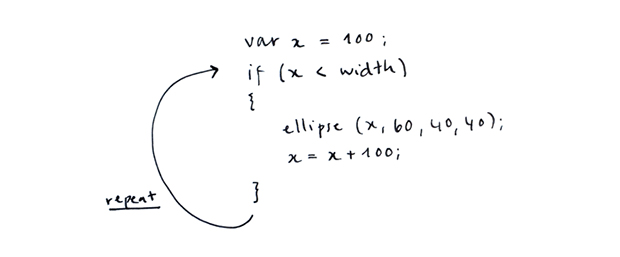 var x = 100;
if (x < width)
{
ellipse (x, 60, 40, 40);
x = x + 100;
}
repeat